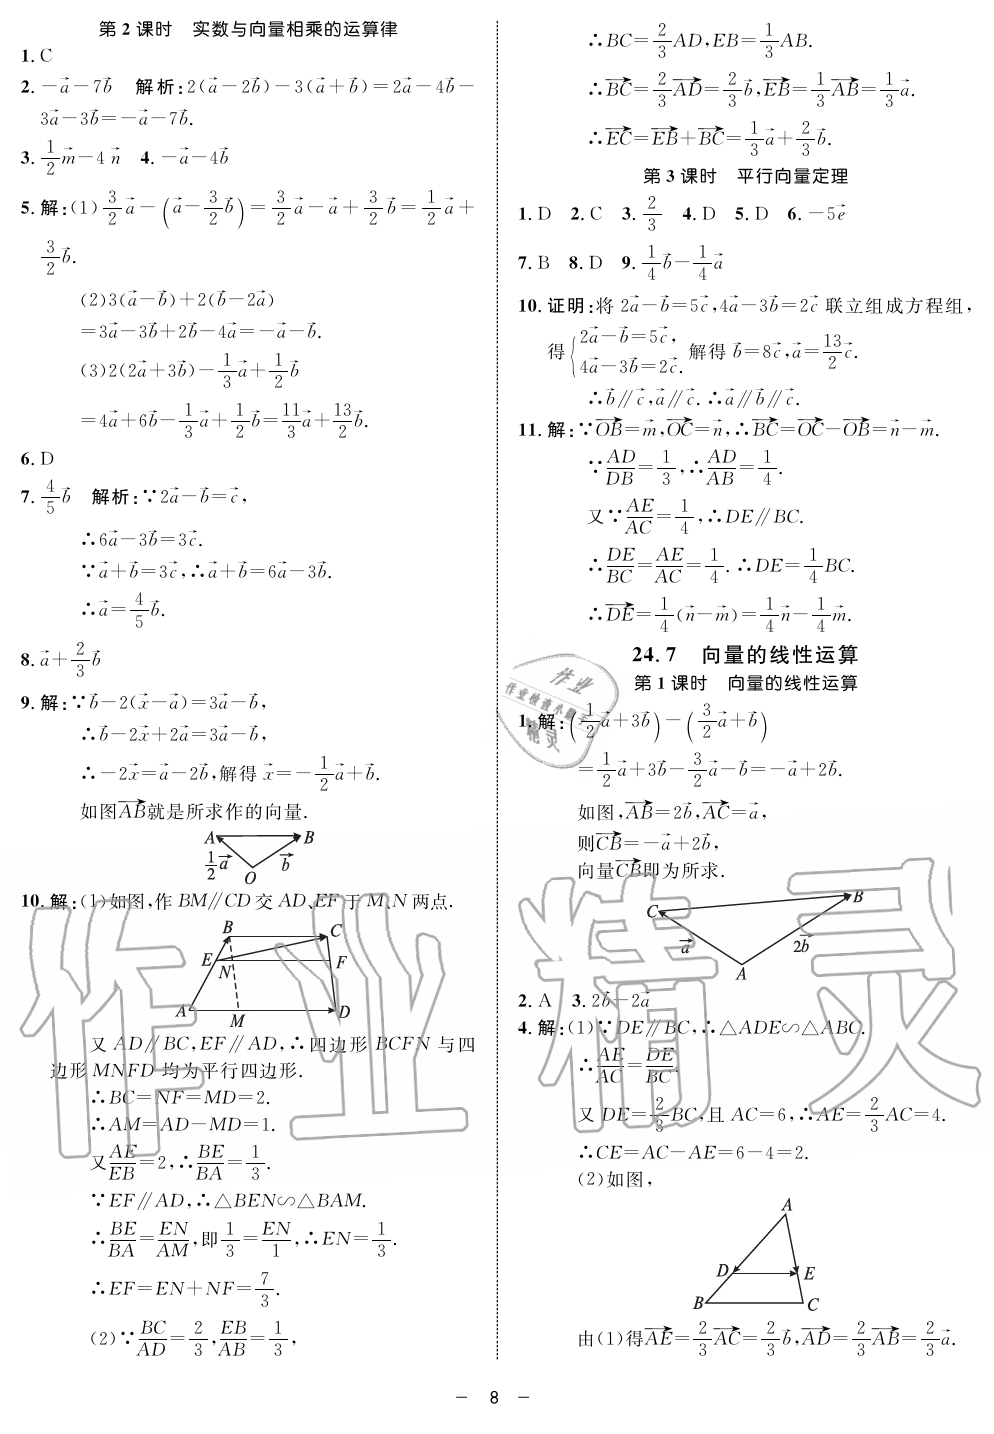 第2课时 实数与向量相乘的运算律
1. C
2. −a⃗−7b⃗ 解析:2(a⃗−2b⃗)−3(a⃗+b⃗)=2a⃗−4b⃗−
3a⃗−3b⃗=−a⃗−7b⃗.
3. 1/2 m⃗−4 n⃗ 4. −a⃗−4b⃗
5. 解:(1) 3/2 a⃗−(a⃗−3/2 b⃗)=3/2 a⃗−a⃗+3/2 b⃗=1/2 a⃗+
3/2 b⃗.
(2)3(a⃗−b⃗)+2(b⃗−2a⃗)
=3a⃗−3b⃗+2b⃗−4a⃗=−a⃗−b⃗.
(3)2(2a⃗+3b⃗)−1/3 a⃗+1/2 b⃗
=4a⃗+6b⃗−1/3 a⃗+1/2 b⃗=11/3 a⃗+13/2 b⃗.
6. D
7. 4/5 b⃗ 解析:∵2a⃗−b⃗=c⃗,
∴6a⃗−3b⃗=3c⃗.
∵a⃗+b⃗=3c⃗,∴a⃗+b⃗=6a⃗−3b⃗.
∴a⃗=4/5 b⃗.
8. a⃗+2/3 b⃗
9. 解:∵b⃗−2(x⃗−a⃗)=3a⃗−b⃗,
∴b⃗−2x⃗+2a⃗=3a⃗−b⃗,
∴−2x⃗=a⃗−2b⃗,解得 x⃗=−1/2 a⃗+b⃗.
如图AB→就是所求作的向量.
A B
1/2 a⃗ b⃗
O
10. 解:(1)如图,作 BM∥CD 交 AD、EF 于 M、N 两点.
B C
E N F
A M D
又 AD∥BC,EF∥AD,∴四边形 BCFN 与四
边形 MNFD 均为平行四边形.
∴BC=NF=MD=2.
∴AM=AD−MD=1.
又 AE/EB=2,∴BE/BA=1/3.
∵EF∥AD,∴△BEN∽△BAM.
∴BE/BA=EN/AM,即1/3=EN/1,∴EN=1/3.
∴EF=EN+NF=7/3.
(2)∵BC/AD=2/3,EB/AB=1/3,
∴BC=2/3 AD,EB=1/3 AB.
∴BC→=2/3 AD→=2/3 b⃗,EB→=1/3 AB→=1/3 a⃗.
∴EC→=EB→+BC→=1/3 a⃗+2/3 b⃗.
第3课时 平行向量定理
1. D 2. C 3. 2/3 4. D 5. D 6. −5e⃗
7. B 8. D 9. 1/4 b⃗−1/4 a⃗
10. 证明:将 2a⃗−b⃗=5c⃗,4a⃗−3b⃗=2c⃗ 联立组成方程组,
得{2a⃗−b⃗=5c⃗, 4a⃗−3b⃗=2c⃗. 解得 b⃗=8c⃗,a⃗=13/2 c⃗.
∴b⃗∥c⃗,a⃗∥c⃗.∴a⃗∥b⃗∥c⃗.
11. 解:∵OB→=m⃗,OC→=n⃗,∴BC→=OC→−OB→=n⃗−m⃗.
∵AD/DB=1/3,∴AD/AB=1/4.
又∵AE/AC=1/4,∴DE∥BC.
∴DE/BC=AE/AC=1/4.∴DE=1/4 BC.
∴DE→=1/4(n⃗−m⃗)=1/4 n⃗−1/4 m⃗.
24.7 向量的线性运算
第1课时 向量的线性运算
1. 解:(1/2 a⃗+3b⃗)−(3/2 a⃗+b⃗)
=1/2 a⃗+3b⃗−3/2 a⃗−b⃗=−a⃗+2b⃗.
如图,AB→=2b⃗,AC→=a⃗,
则CB→=−a⃗+2b⃗,
向量CB→即为所求.
C B
a⃗ 2b⃗
A
2. A 3. 2b⃗−2a⃗
4. 解:(1)∵DE∥BC,∴△ADE∽△ABC.
∴AE/AC=DE/BC.
又 DE=2/3 BC,且 AC=6,∴AE=2/3 AC=4.
∴CE=AC−AE=6−4=2.
(2)如图,
A
D E
B C
由(1)得AE→=2/3 AC→=2/3 b⃗,AD→=2/3 AB→=2/3 a⃗.
− 8 −
作业精灵
作业
作业检查小助手
精灵